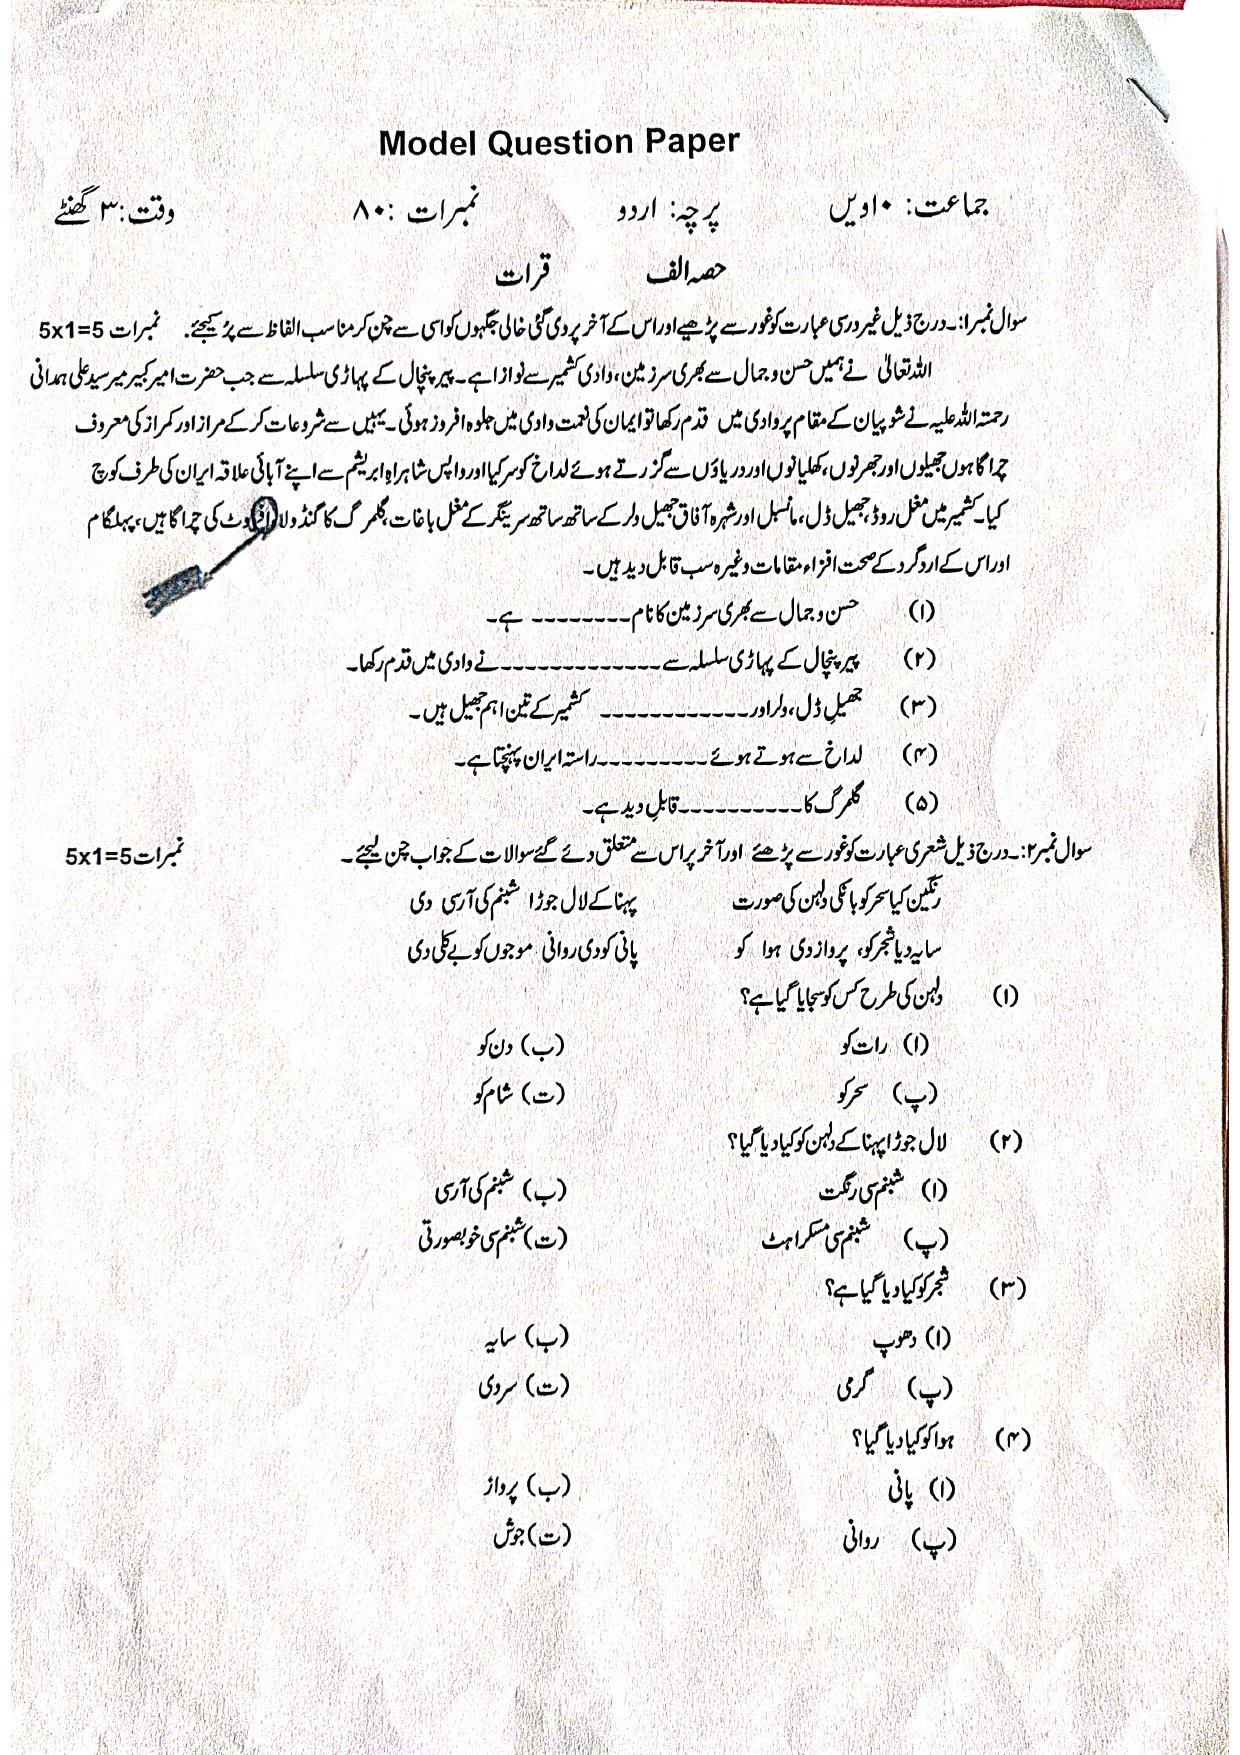 Model Question Paper
جماعت: ۱۰ویں پرچہ: اردو نمبرات :۸۰ وقت:۳ گھنٹے
حصہ الف قرات
سوال نمبر۱:۔درج ذیل غیر درسی عبارت کو غور سے پڑھیے اور اس کے آخر پر دی گئی خالی جگہوں کو اسی سے چن کر مناسب الفاظ سے پُر کیجئے۔ نمبرات 5x1=5
اللہ تعالیٰ نے ہمیں حسن و جمال سے بھری سرزمین، وادی کشمیر سے نوازا ہے۔ پیر پنچال کے پہاڑی سلسلہ سے جب حضرت امیر کبیر میر سید علی ہمدانی
رحمتہ اللہ علیہ نے شوپیان کے مقام پر وادی میں قدم رکھا تو ایمان کی نعمت وادی میں جلوہ افروز ہوئی۔ یہیں سے شروعات کر کے مراز اور کمراز کی معروف
چراگاہوں جھیلوں اور جھرنوں، کھلیانوں اور دریاؤں سے گزرتے ہوئے لداخ کو سر کیا اور واپس شاہراہِ ابریشم سے اپنے آبائی علاقہ ایران کی طرف کوچ
کیا۔ کشمیر میں مغل روڈ، جھیل ڈل، مانسبل اور شہرہ آفاق جھیل ولر کے ساتھ ساتھ سرینگر کے مغل باغات، گلمرگ کا گنڈولا کی چراگاہیں، پہلگام
اور اس کے ارد گرد کے صحت افزاء مقامات وغیرہ سب قابل دید ہیں۔
(۱) حسن و جمال سے بھری سرزمین کا نام--------- ہے۔
(۲) پیر پنچال کے پہاڑی سلسلہ سے--------------نے وادی میں قدم رکھا۔
(۳) جھیلِ ڈل، ولر اور------------- کشمیر کے تین اہم جھیل ہیں۔
(۴) لداخ سے ہوتے ہوئے----------راستہ ایران پہنچتا ہے۔
(۵) گلمرگ کا-----------قابلِ دید ہے۔
سوال نمبر۲:۔درج ذیل شعری عبارت کو غور سے پڑھئے اور آخر پر اس سے متعلق دئے گئے سوالات کے جواب چن لیجئے۔ نمبرات5x1=5
رنگین کیا سحر کو بانکی دلہن کی صورت پہنا کے لال جوڑا شبنم کی آرسی دی
سایہ دیا شجر کو، پرواز دی ہوا کو پانی کو دی روانی موجوں کو بے کلی دی
(۱) دلہن کی طرح کس کو سجایا گیا ہے؟
(ا) رات کو (ب) دن کو
(پ) سحر کو (ت) شام کو
(۲) لال جوڑا پہنا کے دلہن کو کیا دیا گیا؟
(ا) شبنم سی رنگت (ب) شبنم کی آرسی
(پ) شبنم سی مسکراہٹ (ت) شبنم سی خوبصورتی
(۳) شجر کو کیا دیا گیا ہے؟
(ا) دھوپ (ب) سایہ
(پ) گرمی (ت) سردی
(۴) ہوا کو کیا دیا گیا؟
(ا) پانی (ب) پرواز
(پ) روانی (ت) جوش